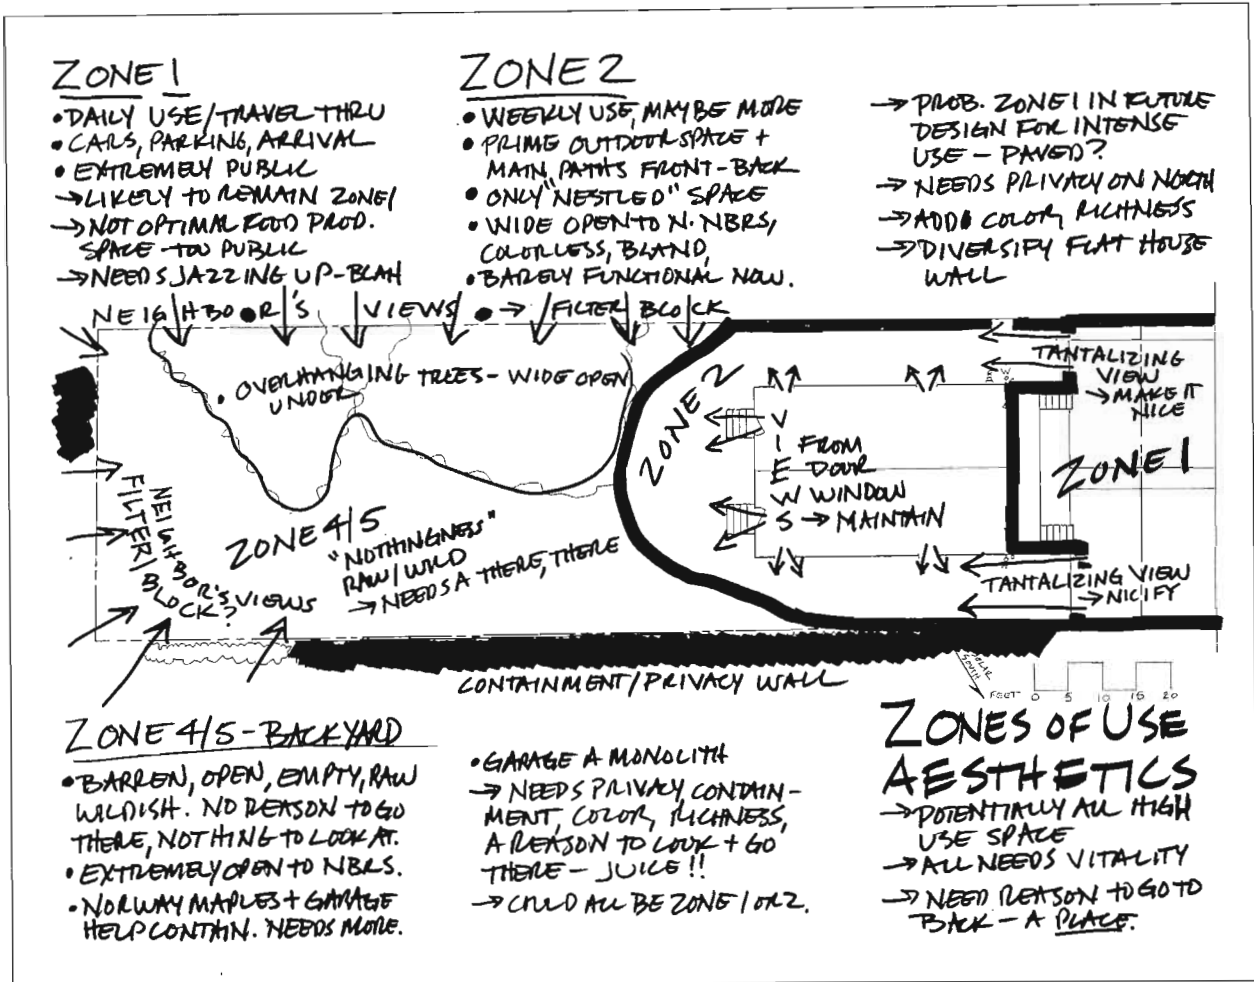 ZONE 1
• DAILY USE/TRAVEL THRU
• CARS, PARKING, ARRIVAL
• EXTREMELY PUBLIC
→ LIKELY TO REMAIN ZONE 1
→ NOT OPTIMAL FOOD PROD.
SPACE - TOO PUBLIC
→ NEEDS JAZZING UP - BLAH
ZONE 2
• WEEKLY USE, MAYBE MORE
• PRIME OUTDOOR SPACE +
MAIN PATHS FRONT - BACK
• ONLY "NESTLED" SPACE
• WIDE OPEN TO N. NBRS,
COLORLESS, BLAND,
• BARELY FUNCTIONAL NOW.
→ PROB. ZONE 1 IN FUTURE
DESIGN FOR INTENSE
USE - PAVED?
→ NEEDS PRIVACY ON NORTH
→ ADD COLOR, RICHNESS
→ DIVERSIFY FLAT HOUSE
WALL
NEIGHBOR'S VIEWS • → FILTER BLOCK
• OVERHANGING TREES - WIDE OPEN
UNDER
ZONE 2
VIEWS
FROM
DOOR
WINDOW
→ MAINTAIN
TANTALIZING
VIEW
→ MAKE IT
NICE
ZONE 1
TANTALIZING VIEW
→ NICIFY
NEIGHBOR'S VIEWS
FILTER/BLOCK?
ZONE 4/5
"NOTHINGNESS"
RAW/WILD
→ NEEDS A THERE, THERE
CONTAINMENT/PRIVACY WALL
SOLAR
SOUTH
FEET 0 5 10 15 20
ZONE 4/5 - BACKYARD
• BARREN, OPEN, EMPTY, RAW
WILDISH. NO REASON TO GO
THERE, NOTHING TO LOOK AT.
• EXTREMELY OPEN TO NBRS.
• NORWAY MAPLES + GARAGE
HELP CONTAIN. NEEDS MORE.
• GARAGE A MONOLITH
→ NEEDS PRIVACY CONTAIN-
MENT, COLOR, RICHNESS,
A REASON TO LOOK + GO
THERE - JUICE!!
→ COULD ALL BE ZONE 1 OR 2.
ZONES OF USE
AESTHETICS
→ POTENTIALLY ALL HIGH
USE SPACE
→ ALL NEEDS VITALITY
→ NEED REASON TO GO TO
BACK - A PLACE.